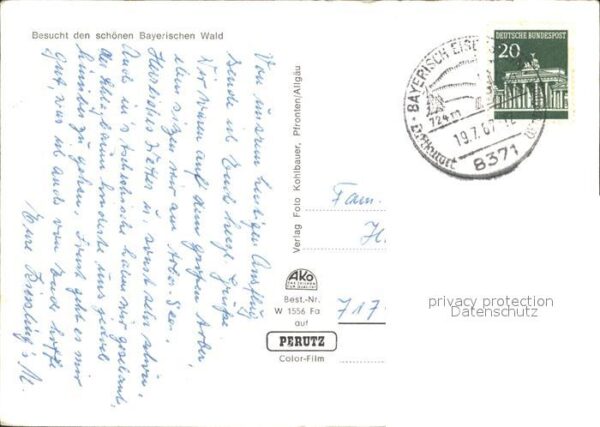 Besucht den schönen Bayerischen Wald
Von unserem heutigen Ausflug
sende ich Euch liebe Grüße.
Wir waren auf dem großen Arber,
eben sitzen wir am Arber See.
Herrliches Wetter u. sonst sehr schön.
Auch in's tschechische haben wir geschaut.
hinüber zu gehen. Sonst geht es mir
gut, was ich auch von Euch hoffe
Eure
Verlag Foto Kohlbauer, Pfronten/Allgäu
AKO
Best.-Nr.
W 1556 Fa
auf
PERUTZ
Color-Film
Fam.
717
DEUTSCHE BUNDESPOST
20
BAYERISCH EISE
724 m
19.7.67
8371
privacy protection
Datenschutz